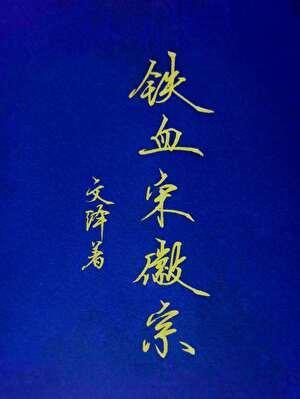 铁血宋徽宗
文泽著